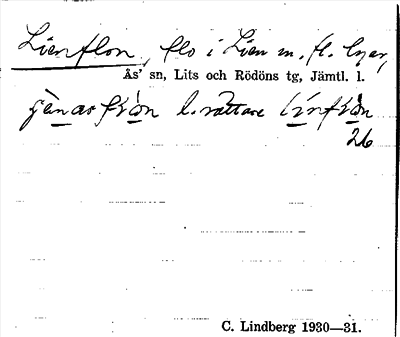 Lienflon, flo i Lien m. fl. byar,
Ås' sn, Lits och Rödöns tg, Jämtl. l.
l. rättare
26
C. Lindberg 1930—31.